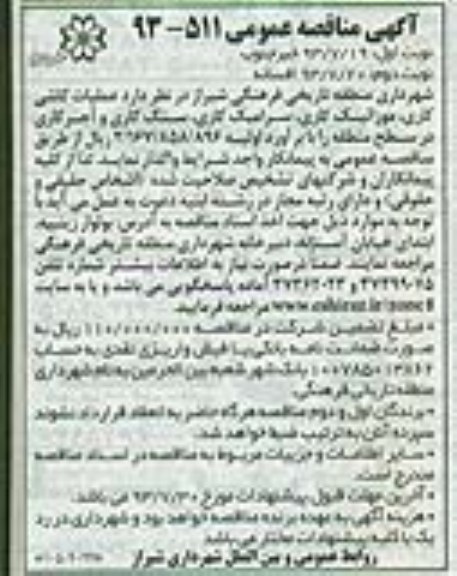 آگهی مناقصه عمومی ۵۱۱-۹۳
نوبت اول: ۹۳/۷/۱۹
نوبت دوم: ۹۳/۷/۲۰
شهرداری منطقه تاریخی فرهنگی شیراز در نظر دارد عملیات کاشی
کاری، موزائیک کاری، سرامیک کاری، سنگ کاری و آجرکاری
در سطح منطقه را با برآورد اولیه ریال از طریق
مناقصه عمومی به پیمانکار واجد شرایط واگذار نمایند. لذا از کلیه
پیمانکاران و شرکتهای تشخیص صلاحیت شده (اشخاص حقیقی و
حقوقی) و دارای رتبه مجاز در رشته ابنیه دعوت به عمل می آید با
توجه به موارد ذیل جهت اخذ اسناد مناقصه به آدرس: بولوار زینبیه،
ابتدای خیابان آستانه، دبیرخانه شهرداری منطقه تاریخی فرهنگی
مراجعه نمایند. ضمناً در صورت نیاز به اطلاعات بیشتر شماره تلفن
و آماده پاسخگویی می باشد و یا به سایت
مراجعه فرمایید.
• مبلغ تضمین شرکت در مناقصه ۱۱۰/۰۰۰/۰۰۰ ریال به
صورت ضمانت نامه بانکی یا فیش واریزی نقدی به حساب
بانک شهر شعبه بین الحرمین به نام شهرداری
منطقه تاریخی فرهنگی.
• برندگان اول و دوم مناقصه هرگاه حاضر به انعقاد قرارداد نشوند
سپرده آنان به ترتیب ضبط خواهد شد.
• سایر اطلاعات و جزییات مربوط به مناقصه در اسناد مناقصه
مندرج است.
• آخرین مهلت قبول پیشنهادات مورخ ۹۳/۷/۳۰ می باشد.
• هزینه آگهی به عهده برنده مناقصه خواهد بود و شهرداری در رد
یک یا کلیه پیشنهادات مختار می باشد
روابط عمومی و بین الملل شهرداری شیراز